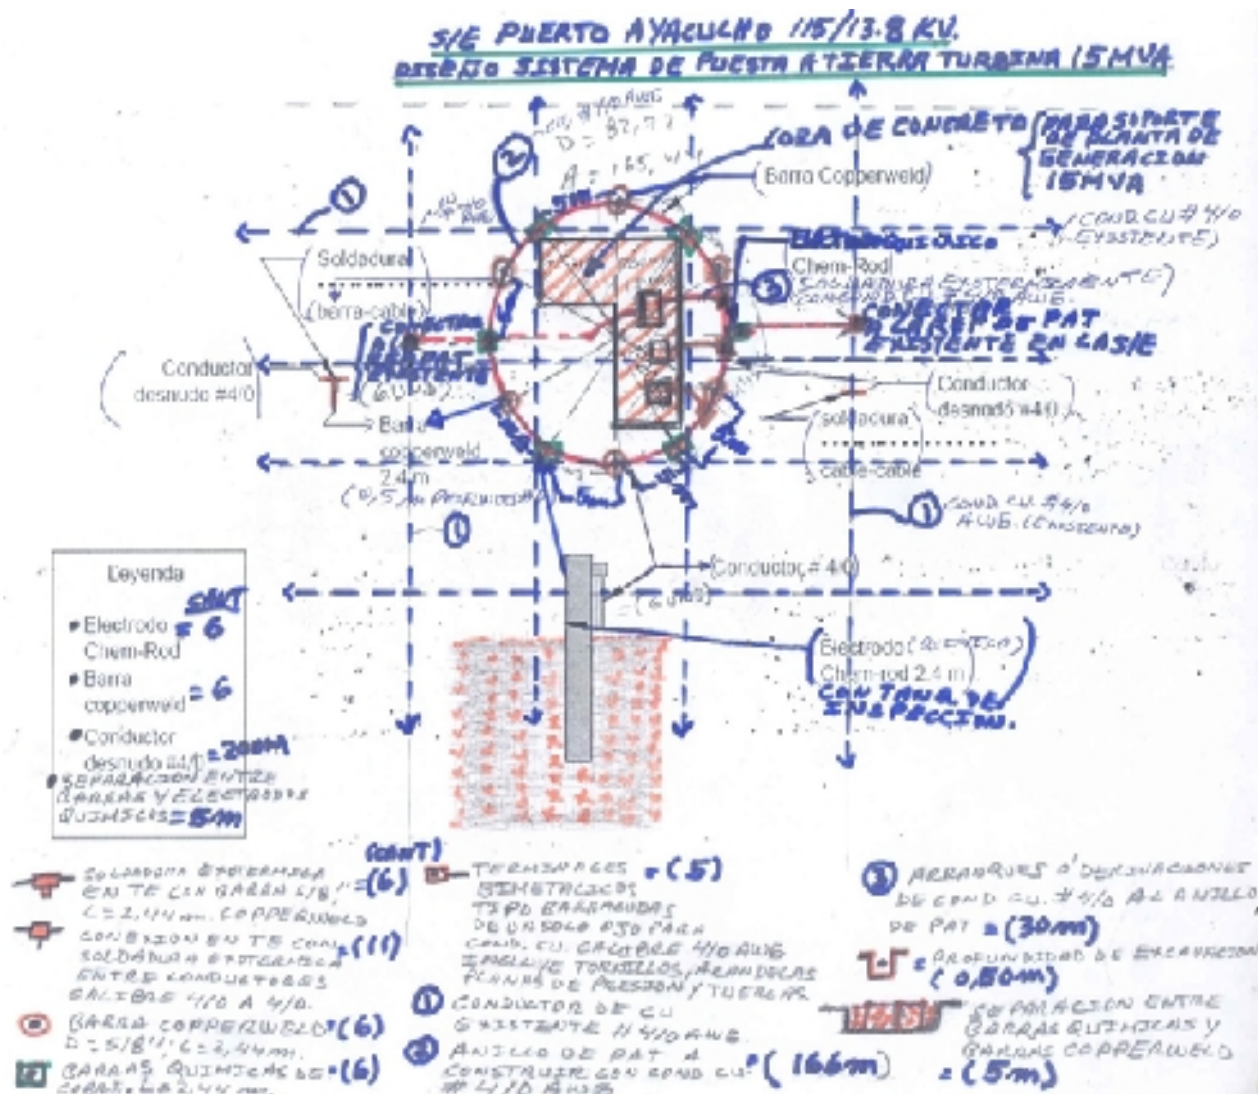 S/E PUERTO AYACUCHO 115/13.8 KV.
DISEÑO SISTEMA DE PUESTA A TIERRA TURBINA 15 MVA
D = 82,77
A = 165,
2
LOZA DE CONCRETO
PARA SOPORTE
DE PLANTA DE
GENERACION
15MVA
(Barra Copperweld)
1
COND CU # 4/0
EXISTENTE)
Soldadura
(barra-cable)
Chem-Rod
3
(SOLDADURA EXOTERMICAMENTE)
CONECTAR
A LA REF DE PAT
EXISTENTE EN LA S/E
CONECTAR
EXISTENTE
Conductor
desnudo #4/0
Conductor
desnudo #4/0
(soldadura
cable-cable
Barra
copperweld
2.4 m
5m
1
1
COND CU. #4/0
AWG. (EXISTENTE)
(Conductor # 4/0)
Electrodo
Chem-rod 2.4 m
CON TANQ. DE
INSPECCION.
Leyenda
CANT
Electrodo = 6
Chem-Rod
Barra
copperweld = 6
Conductor
desnudo #4/0 = 200m
SEPARACION ENTRE
BARRAS Y ELECTRODOS
QUIMICOS = 5m
(CANT)
SOLDADURA EXOTERMICA
EN TE CON BARRA 5/8" = (6)
L = 2,44 m. COPPERWELD
CONEXION EN TE CON
SOLDADURA EXOTERMICA = (11)
ENTRE CONDUCTORES
CALIBRE 4/0 A 4/0.
BARRA COPPERWELD = (6)
D = 5/8" L = 2,44 m.
BARRAS QUIMICAS DE = (6)
TERMINALES = (5)
BIMETALICOS
DE UN SOLO OJO PARA
COND. CU. CALIBRE 4/0 AWG
INCLUYE TORNILLOS, ARANDELAS
PLANAS DE PRESION Y TUERCAS.
1 CONDUCTOR DE CU
EXISTENTE # 4/0 AWG.
2 ANILLO DE PAT A
CONSTRUIR CON COND CU = (166m)
# 4/0 AWG
3 ARRANQUES O DERIVACIONES
DE COND CU. # 4/0 AL ANILLO
DE PAT = (30m)
= PROFUNDIDAD DE EXCAVACION
(0,50m)
SEPARACION ENTRE
BARRAS QUIMICAS Y
BARRAS COPPERWELD
= (5m)